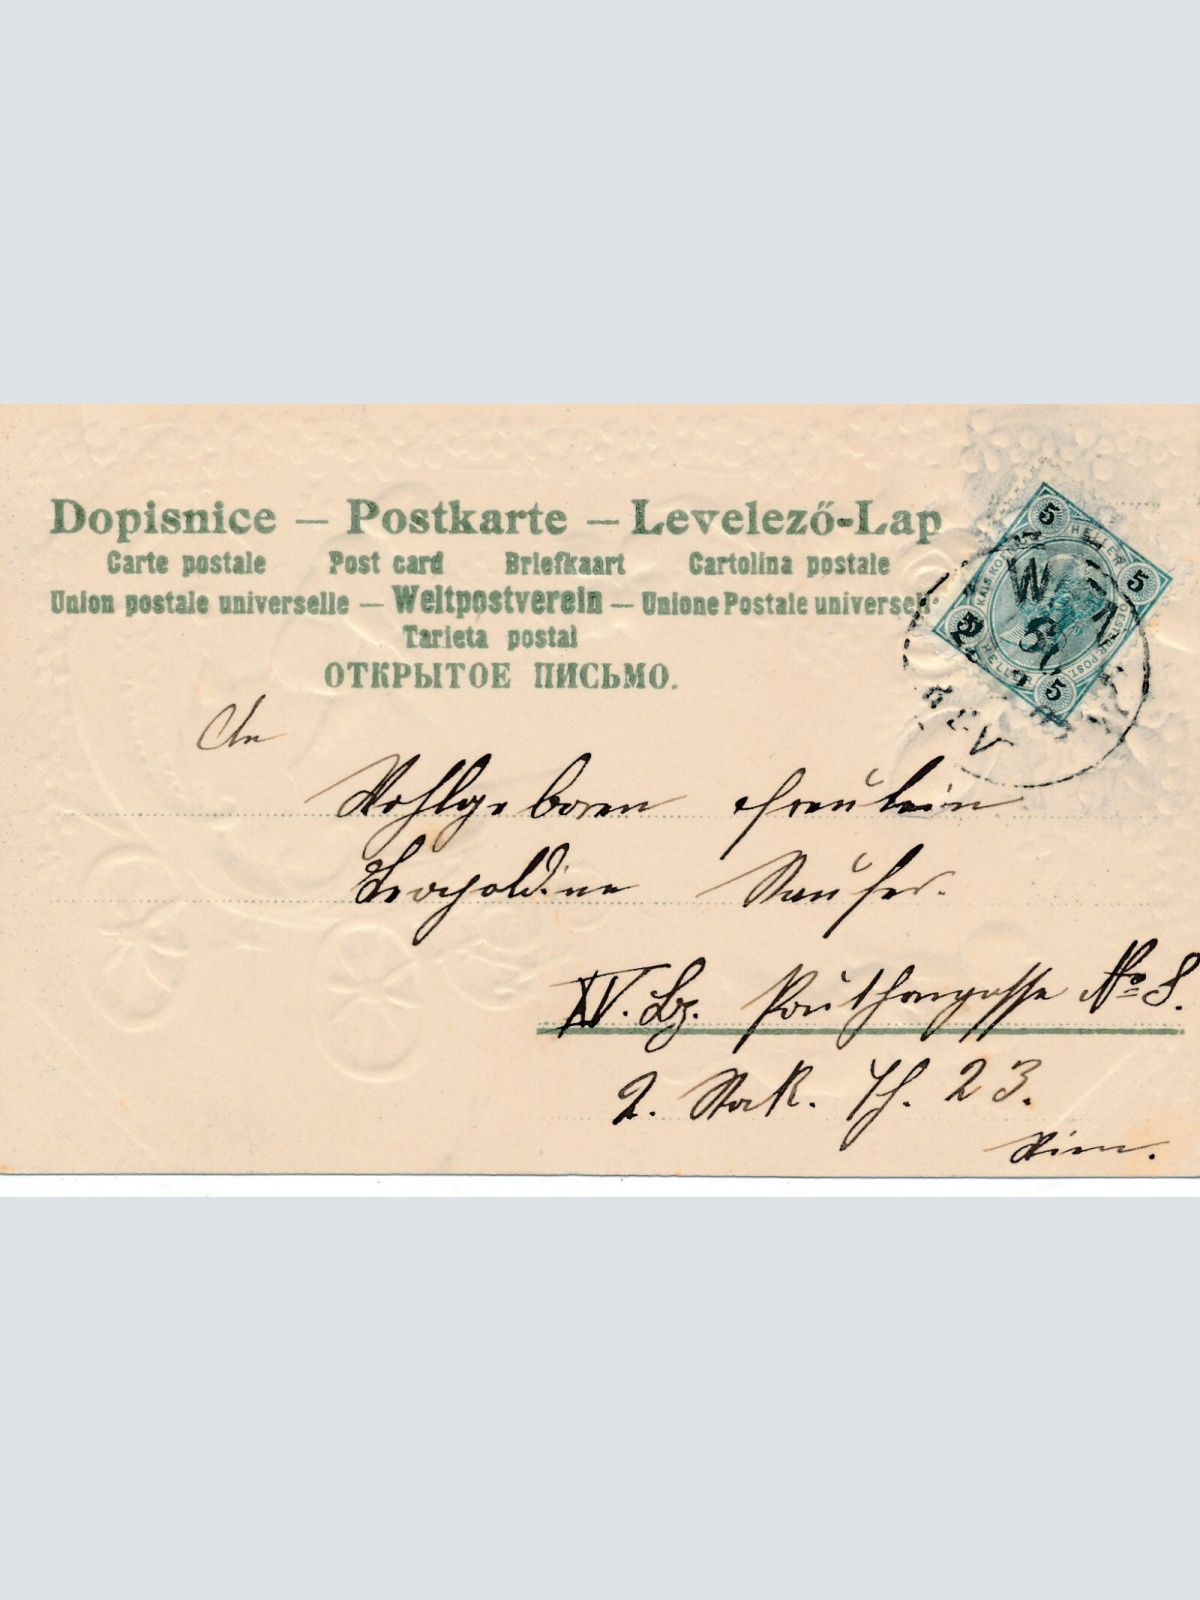 Dopisnice – Postkarte – Levelező-Lap
Carte postale Post card Briefkaart Cartolina postale
Union postale universelle – Weltpostverein – Unione Postale universel
Tarjeta postal
ОТКРЫТОЕ ПИСЬМО.
An
Wohlgeboren Fräulein
Leopoldine
XV. Bz. No 8.
2. Stok. Th. 23.
Wien.
5 HELLER 5
5 HELLER 5
WIEN